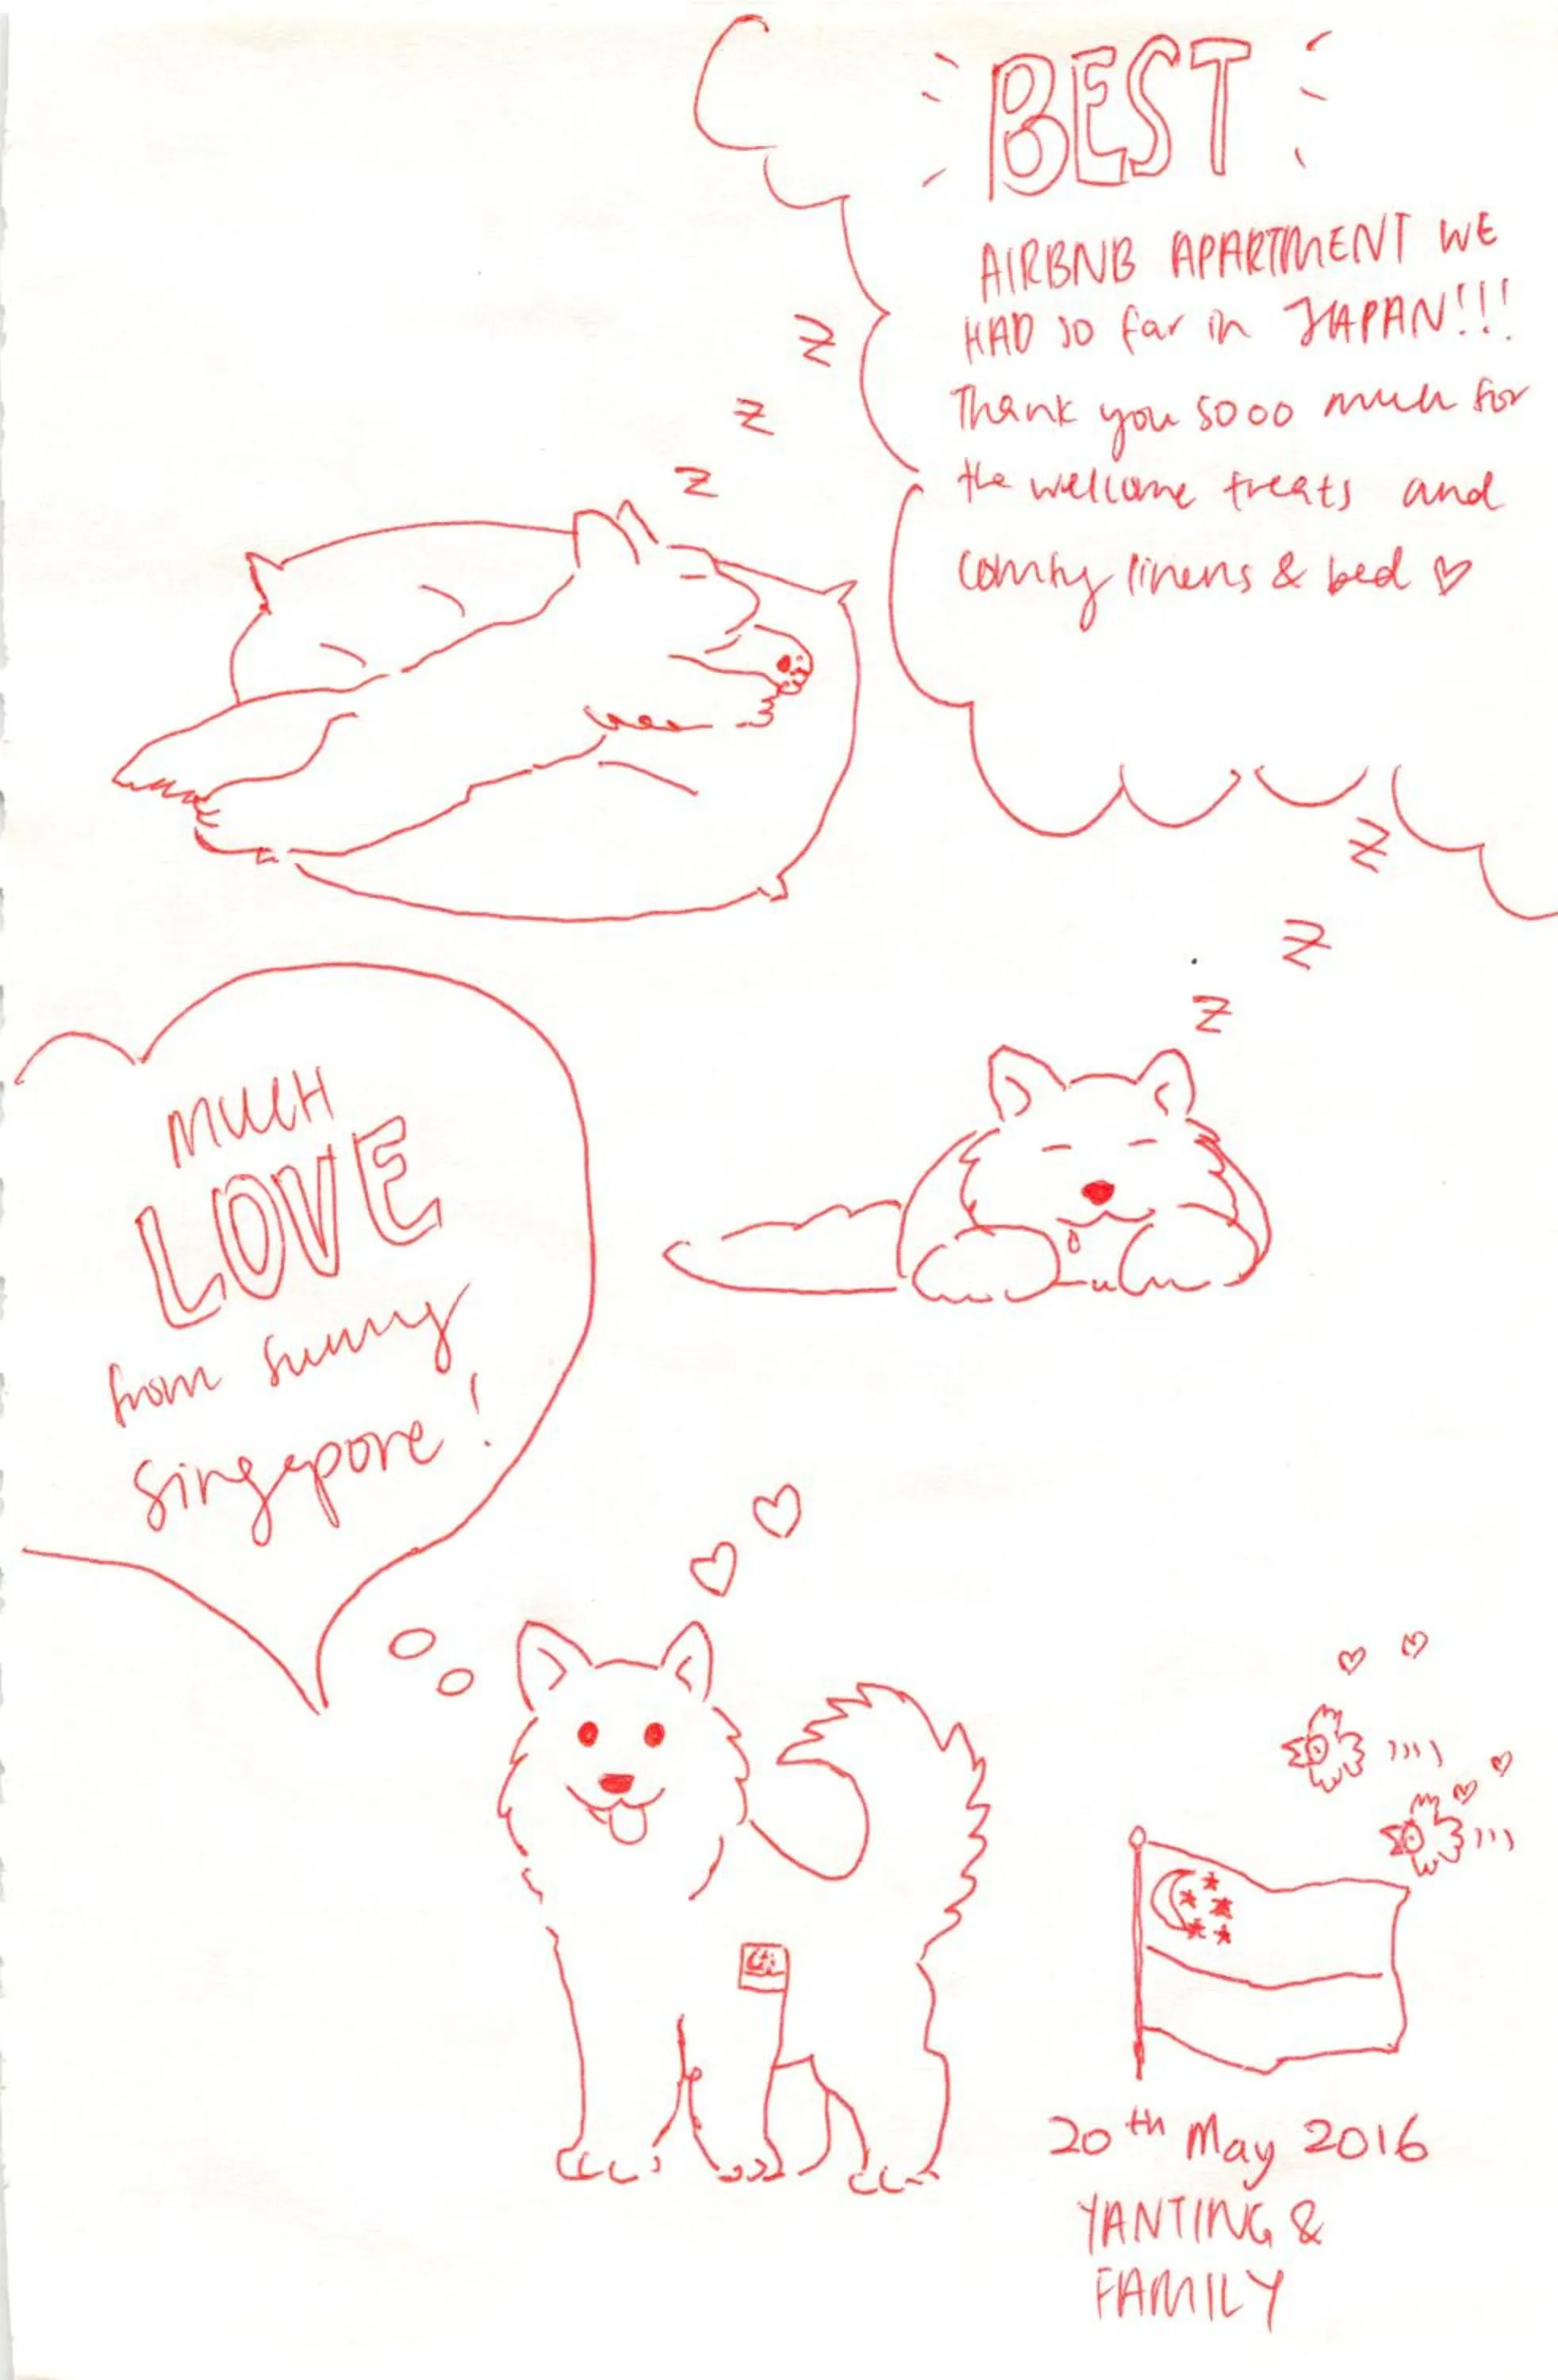 BEST
AIRBNB APARTMENT WE
HAD so far in JAPAN!!!
Thank you sooo much for
the welcome treats and
comfy linens & bed ♡
z
z
z
z
z
z
MUCH
LOVE
from sunny
Singapore!
20th May 2016
YANTING &
FAMILY